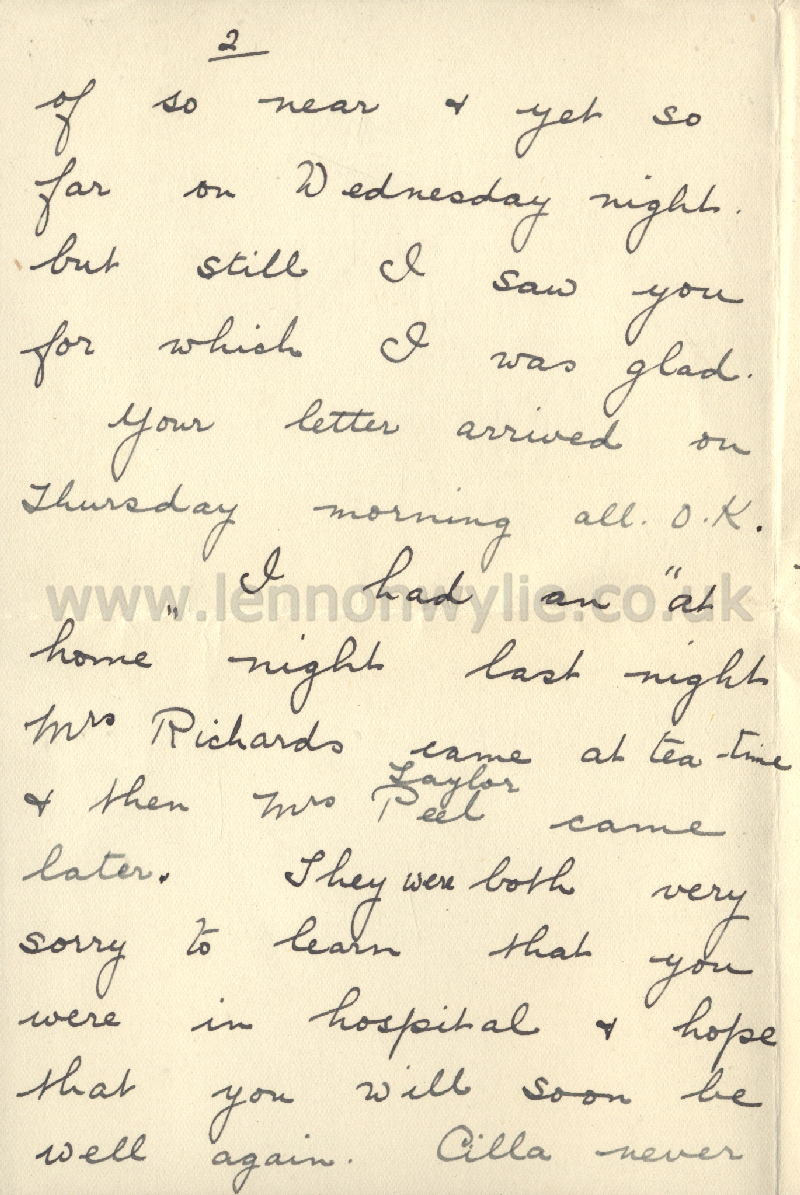 2
of so near & yet so
far on Wednesday night.
but still I saw you
for which I was glad.
Your letter arrived on
Thursday morning all. O.K.
I had an "at
home" night last night
Mrs Richards came at tea time
Taylor
& then Mrs Peel came
later. They were both very
sorry to learn that you
were in hospital & hope
that you will soon be
well again. Cilla never
www.lennonwylie.co.uk